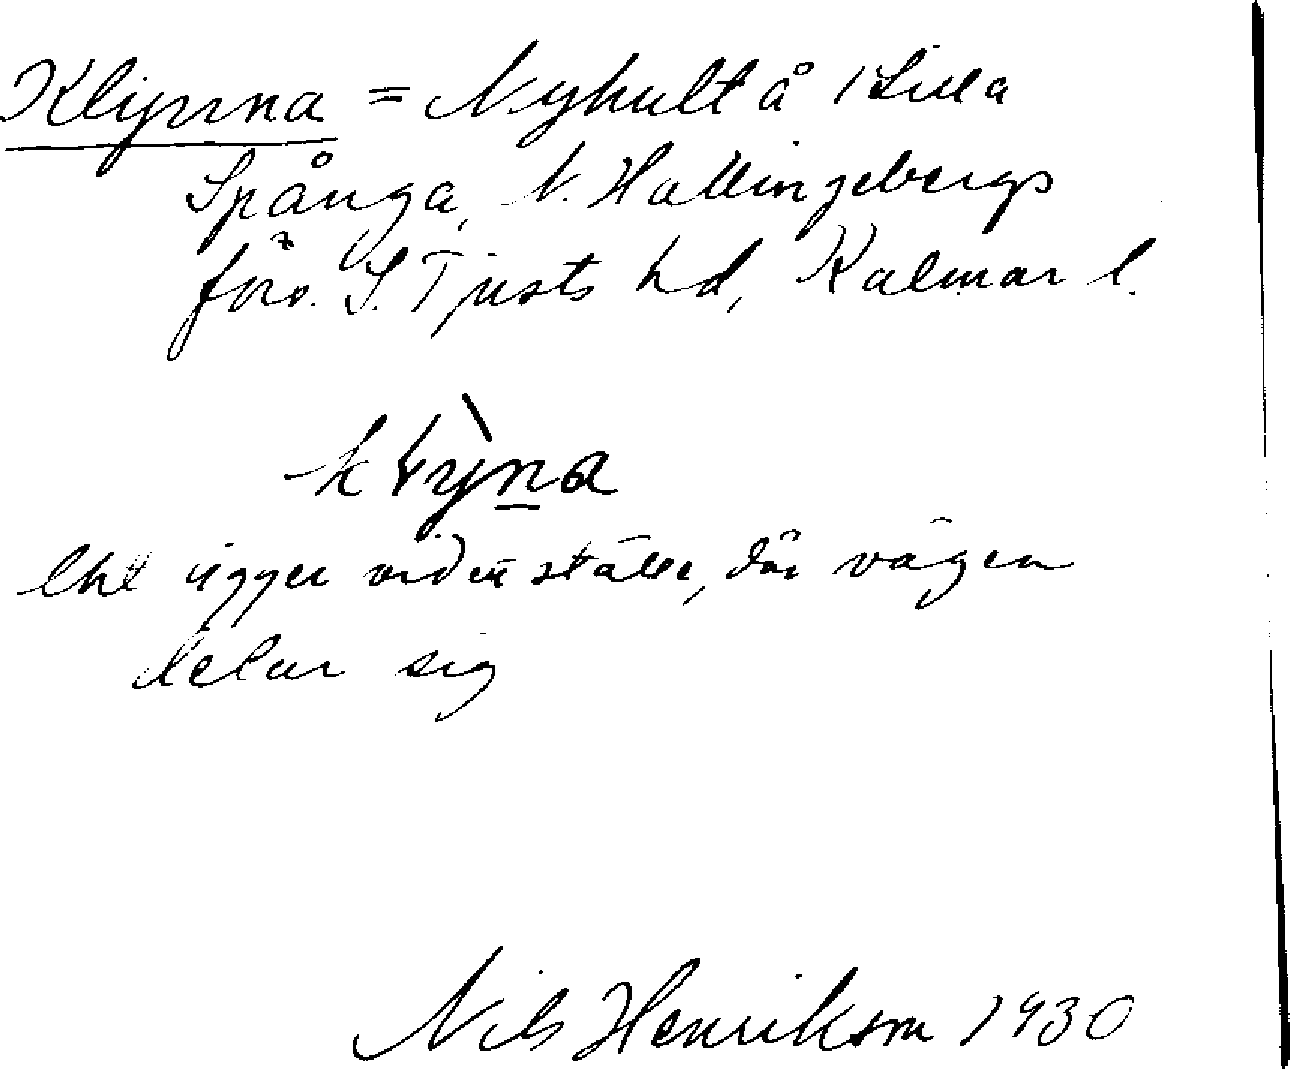 Klynna = Nyhult å Lilla
Spånga, V. Hallingebergs
förs. S. Tjusts hd, Kalmar l.
klyna
Lht ligger vid ett ställe, där vägen
delar sig
Nils Henrikson 1930